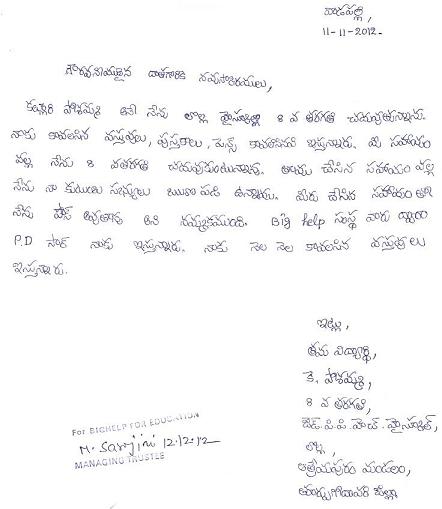 వాడపల్లి,
11-11-2012.
గౌరవనీయులైన దాతగారికి నమస్కారములు,
కట్టా పోశమ్మ అనే నేను లొల్ల హైస్కూల్లో 8 వ తరగతి చదువుతున్నాను.
నాకు కావలసిన వస్తువులు, పుస్తకాలు, పెన్స్ కావలసినవి ఇస్తున్నారు. మీ సహాయం
వల్ల నేను 8 వ తరగతి చదువుకుంటున్నాను. మీరు చేసిన సహాయం వల్ల
నేను నా కుటుంబ సభ్యులు ఋణపడి ఉన్నాము. మీరు చేసిన సహాయం
నేను పాస్ అవుతాను అని నమ్మకముంది. Big help సంస్థ వారు ద్వారా
P.D సార్ నాకు ఇస్తున్నారు. నాకు నెల నెల కావలసిన వస్తువులు
ఇస్తున్నారు.
ఇట్లు,
తమ విద్యార్థి,
కె. పోశమ్మ,
8 వ తరగతి,
జెడ్.పి.పి.హెచ్. హైస్కూల్,
లొల్ల,
ఆత్రేయపురం మండలం,
తూర్పుగోదావరి జిల్లా
For BIGHELP FOR EDUCATION
M. Sarojini 12.12.12
MANAGING TRUSTEE